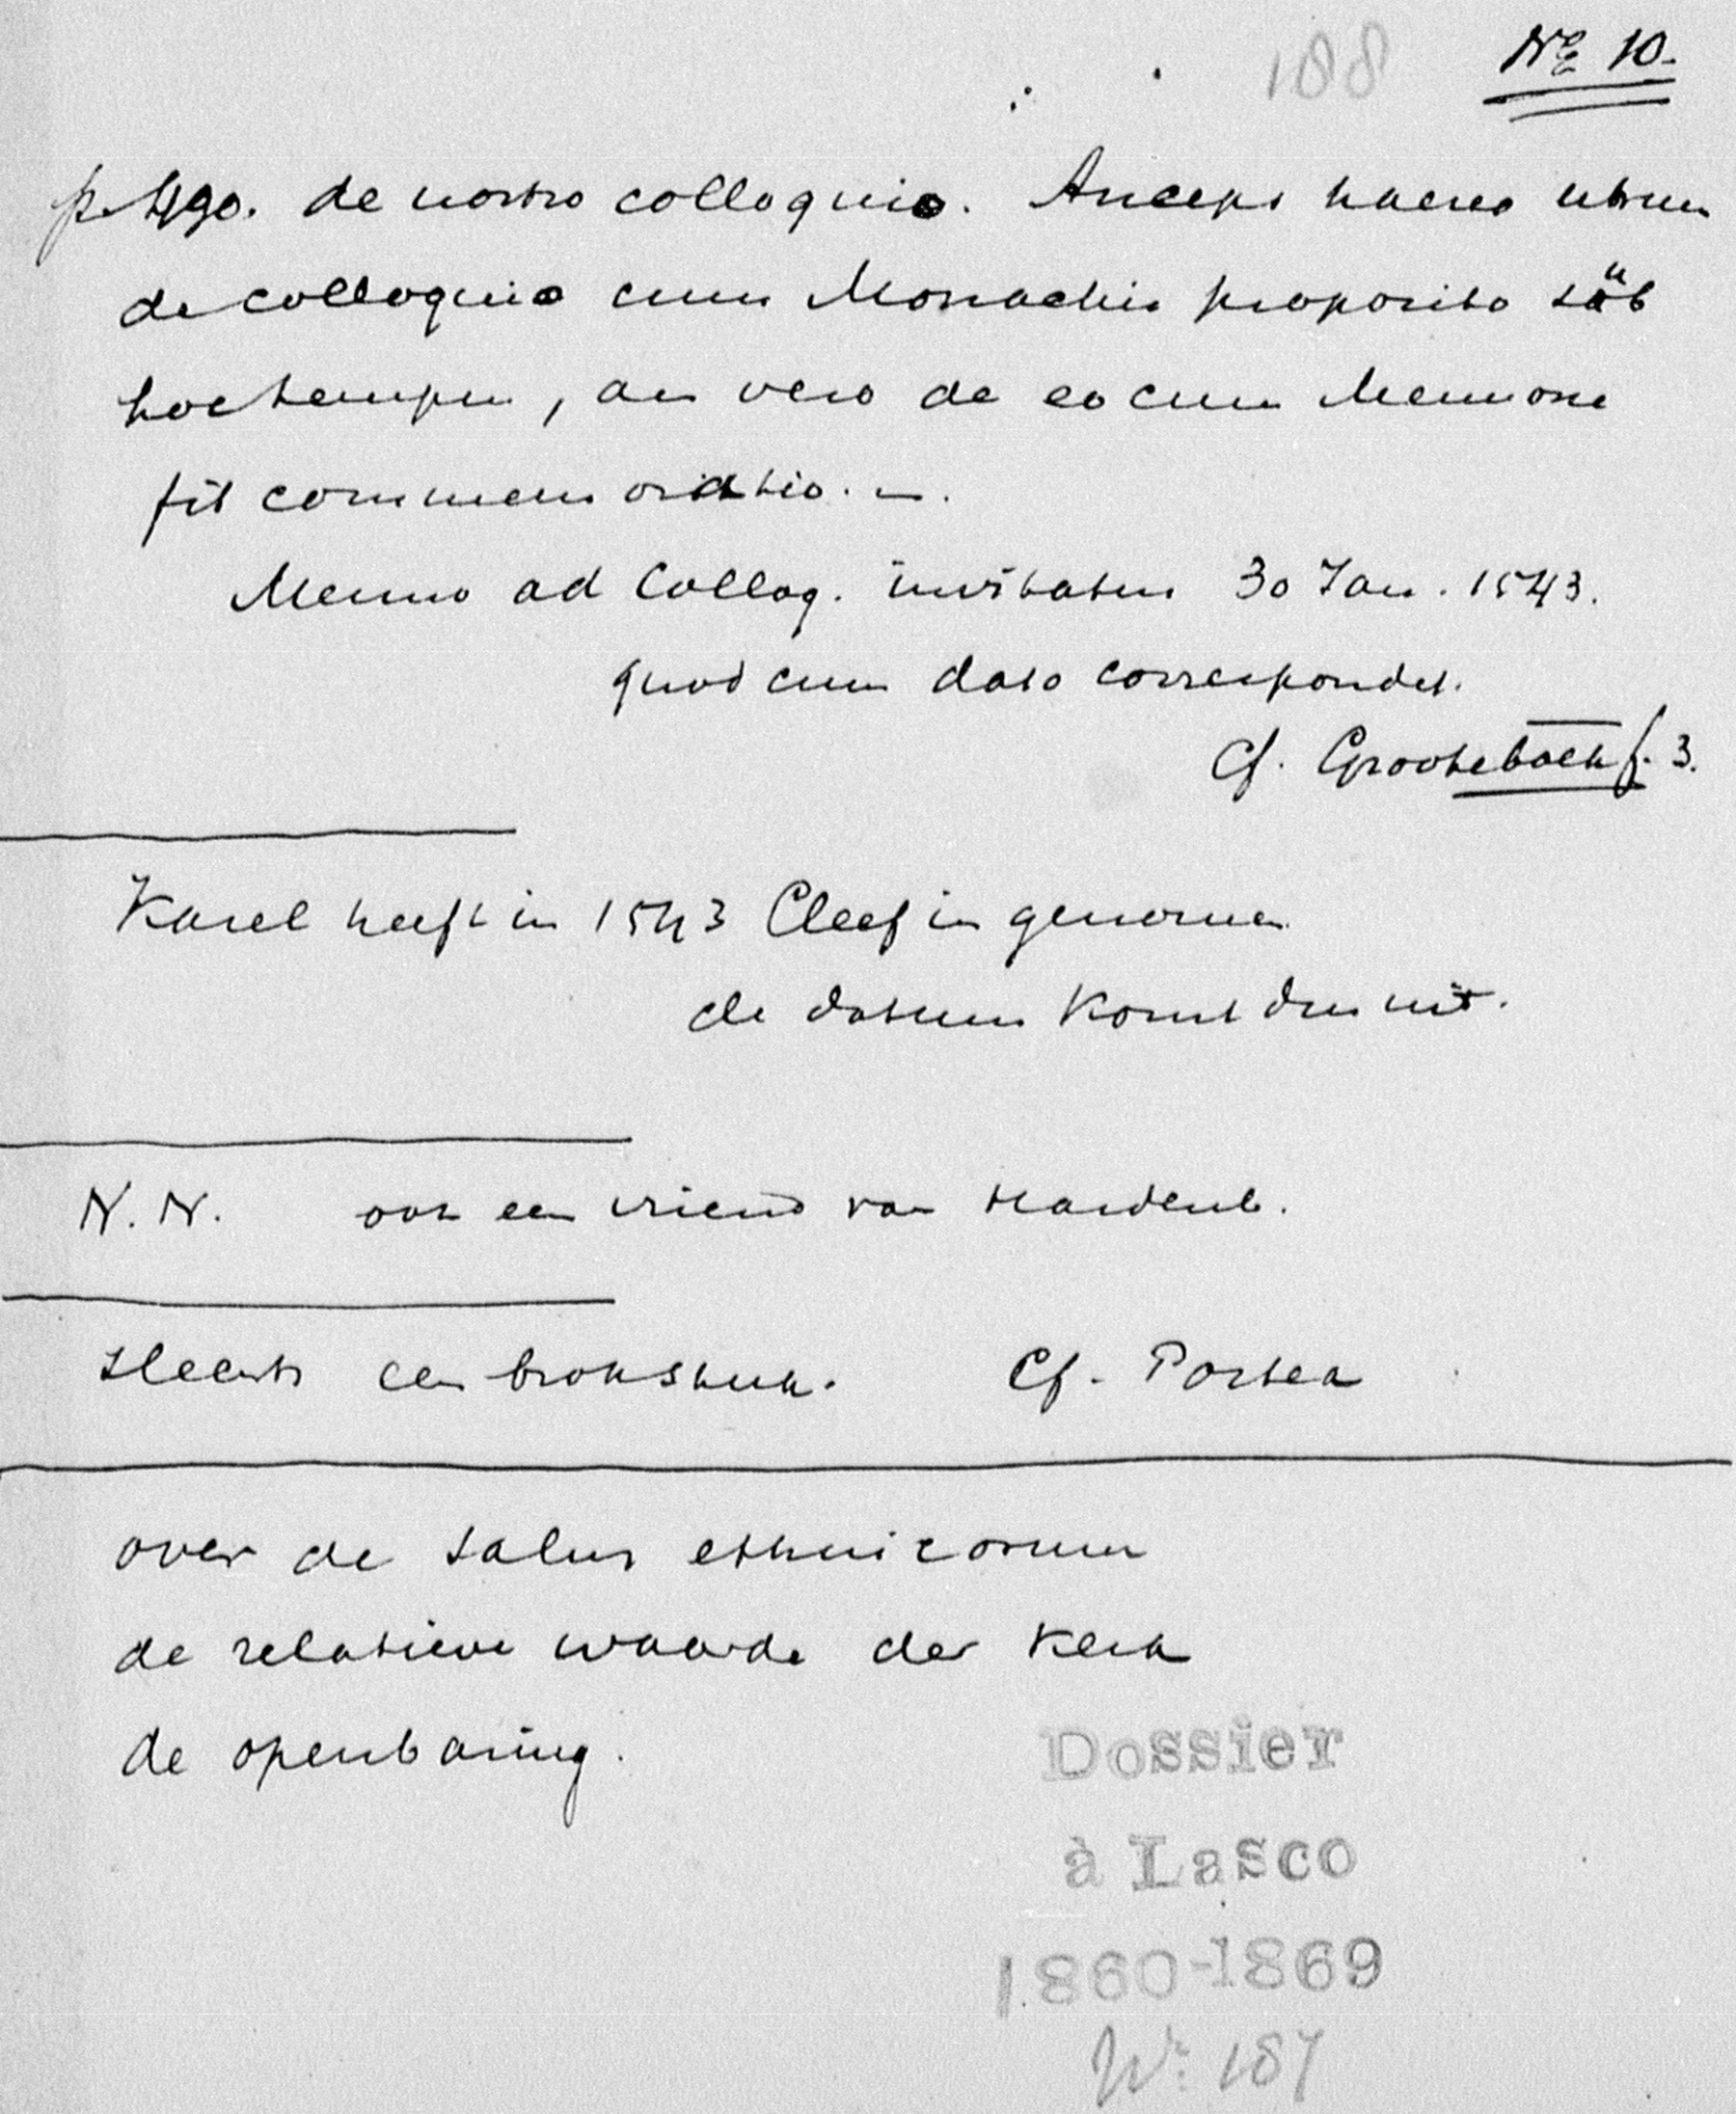 188 No 10.
p. 490. de nostro colloquio. Anceps haereo utrum
de colloquio cum Monachis proposito sub
hoc tempus, an vero de eo cum Mennone
fit commemoratio.
Menno ad Colloq. invitatus 30 Jan. 1543.
quod cum dato correspondet.
Cf. Grooteboek f. 3.
Karel heeft in 1543 Cleef in genomen
de datum komt dus uit.
N. N. ook een vriend van Hardenb.
slechts een brokstuk. Cf. Postea
over de salus ethnicorum
de relatieve waarde der Kerk
de openbaring.
Dossier
à Lasco
1860-1869
No 187